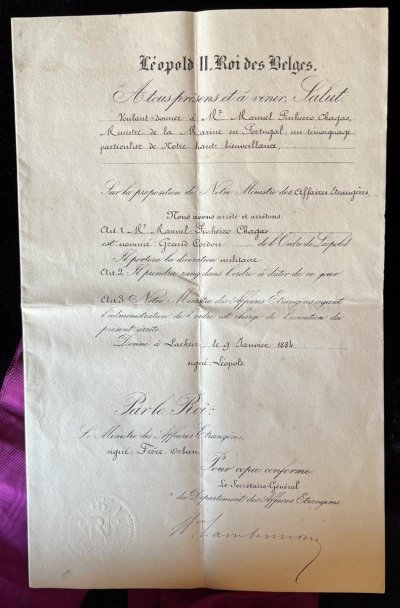 Léopold II, Roi des Belges,
A tous présens et à venir, Salut.
Voulant donner à Mr Manuel Pinheiro Chagas,
Ministre de la Marine en Portugal, un témoignage
particulier de Notre haute bienveillance,
Sur la proposition de Notre Ministre des Affaires Etrangères,
Nous avons arrêté et arrêtons:
Art. 1. Mr Manuel Pinheiro Chagas
est nommé Grand Cordon de l'Ordre de Léopold
Il portera la décoration militaire
Art. 2. Il prendra rang dans l'ordre à dater de ce jour.
Art. 3. Notre Ministre des Affaires Etrangères, ayant
l'administration de l'ordre, est chargé de l'exécution du
présent arrêté.
Donné à Laeken, le 9 Janvier 1884.
signé: Léopold.
Par le Roi:
Le Ministre des Affaires Etrangères,
signé: Frère-Orban.
Pour copie conforme:
Le Secrétaire-Général
du Département des Affaires Etrangères
Bon Lambermont